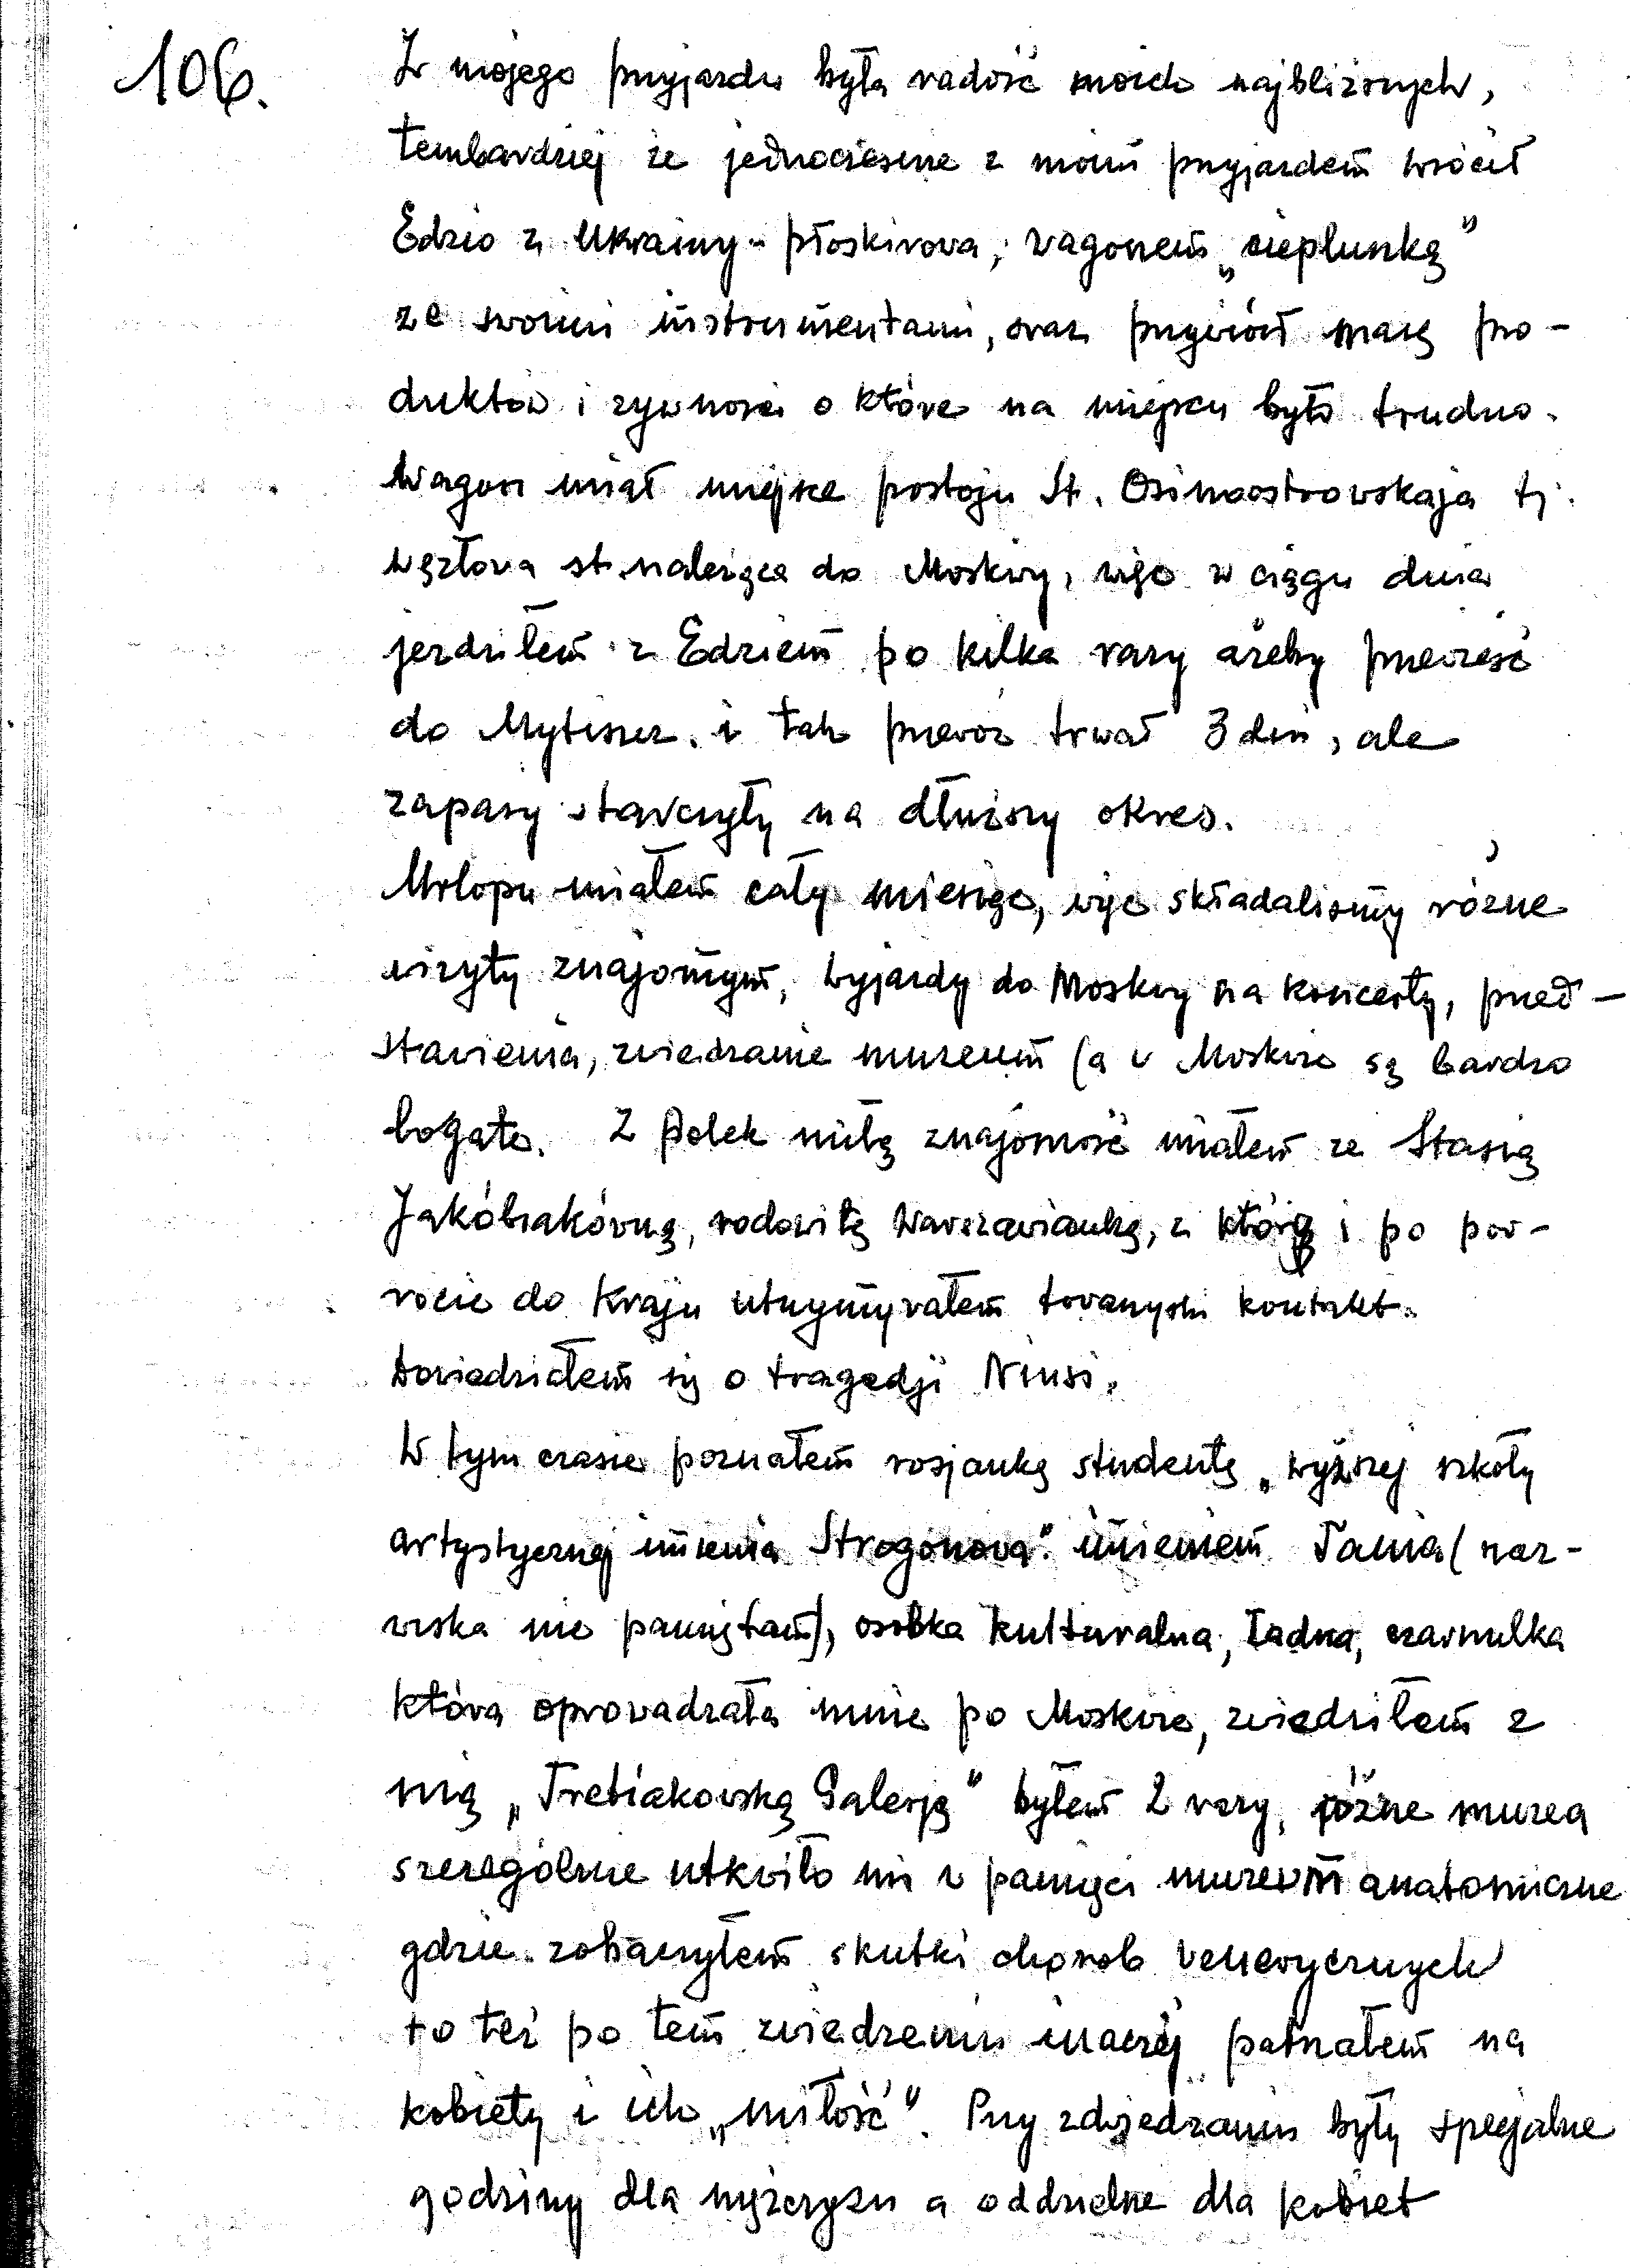 106.
Z mojego przyjazdu była radość moich najbliższych,
tembardziej że jednocześnie z moim przyjazdem wrócił
Edzio z Ukrainy - Płoskirowa, wagonem „ciepluszką”
ze swoimi instrumentami, oraz przywiózł masę pro-
duktów i żywności o które na miejscu było trudno.
Wagon miał miejsce postoju St. Osinoostrowskaja tj.
węzłowa st. należąca do Moskwy, więc w ciągu dnia
jezdziłem z Edziem po kilka razy ażeby przewieść
do Mytiszcz. i tak przewóz trwał 3 dni, ale
zapasy starczyły na dłuższy okres.
Urlopu miałem cały miesiąc, więc składaliśmy różne
wizyty znajomym, wyjazdy do Moskwy na koncerty, przed-
stawienia, zwiedzanie muzeum (a w Moskwie są bardzo
bogate. Z Polek miłą znajomość miałem ze Stasią
Jakóbiakówną, rodowitą Warszawianką, z którą i po pow-
rocie do Kraju utrzymywałem towarzyski kontakt.
Dowiedziałem się o tragedji Niusi.
W tym czasie poznałem rosjankę studentę „wyższej szkoły
artystycznej imienia Strogonowa”. imieniem Tania (naz-
wiska nie pamiętam), osobka kulturalna, ładna, czarnulka
która oprowadzała mnie po Moskwie, zwiedziłem z
nią „Tretiakowską Galerją” byłem 2 razy, różne muzea
szczególnie utkwiło mi w pamięci muzeum anatomiczne
gdzie zobaczyłem skutki chorob wenerycznych
to też po tem zwiedzeniu inaczej patrzałem na
kobiety i ich „miłość”. Przy zdwiedzaniu były specjalne
godziny dla mężczyzn a oddzielne dla kobiet